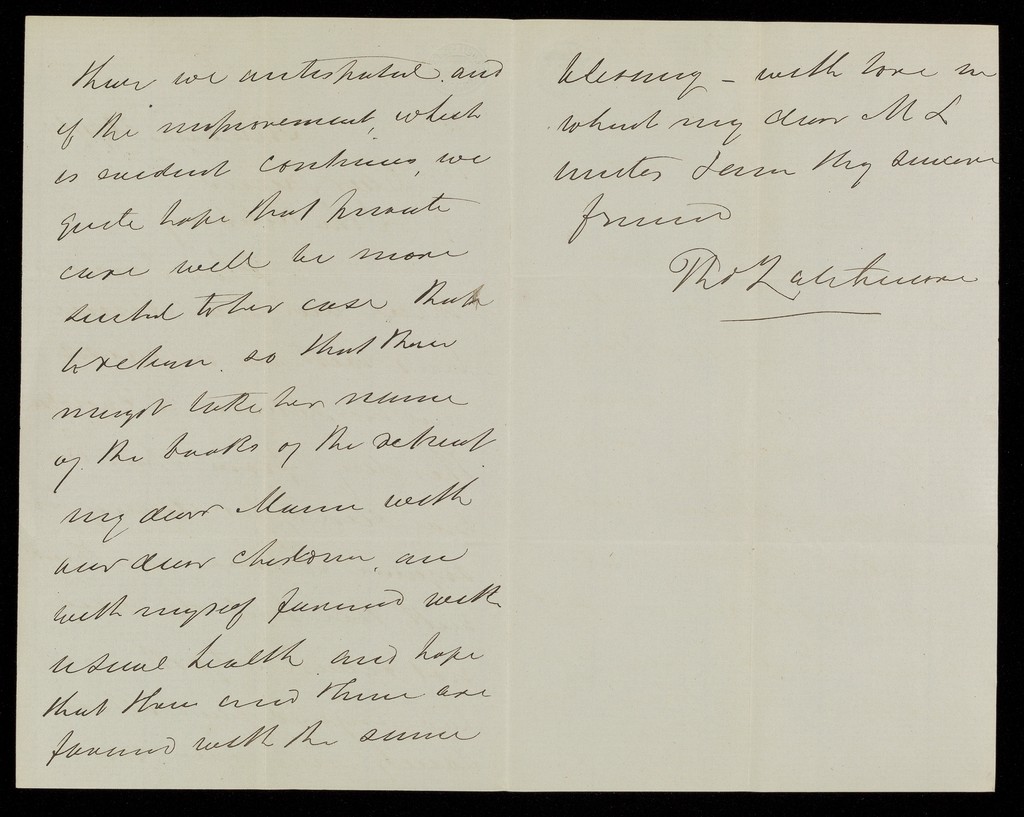 than we anticipated, and
of the improvement, which
is evident continues, we
quite hope that private
care will be more
suited to her case than
so that thou
mayst take her name
of the books of the retreat
my dear with
our dear children, are
with myself favored with
usual health and hope
that thou and thine are
favored with the same
blessing - with love in
which my dear M L
unites I am thy sincere
friend
Thos